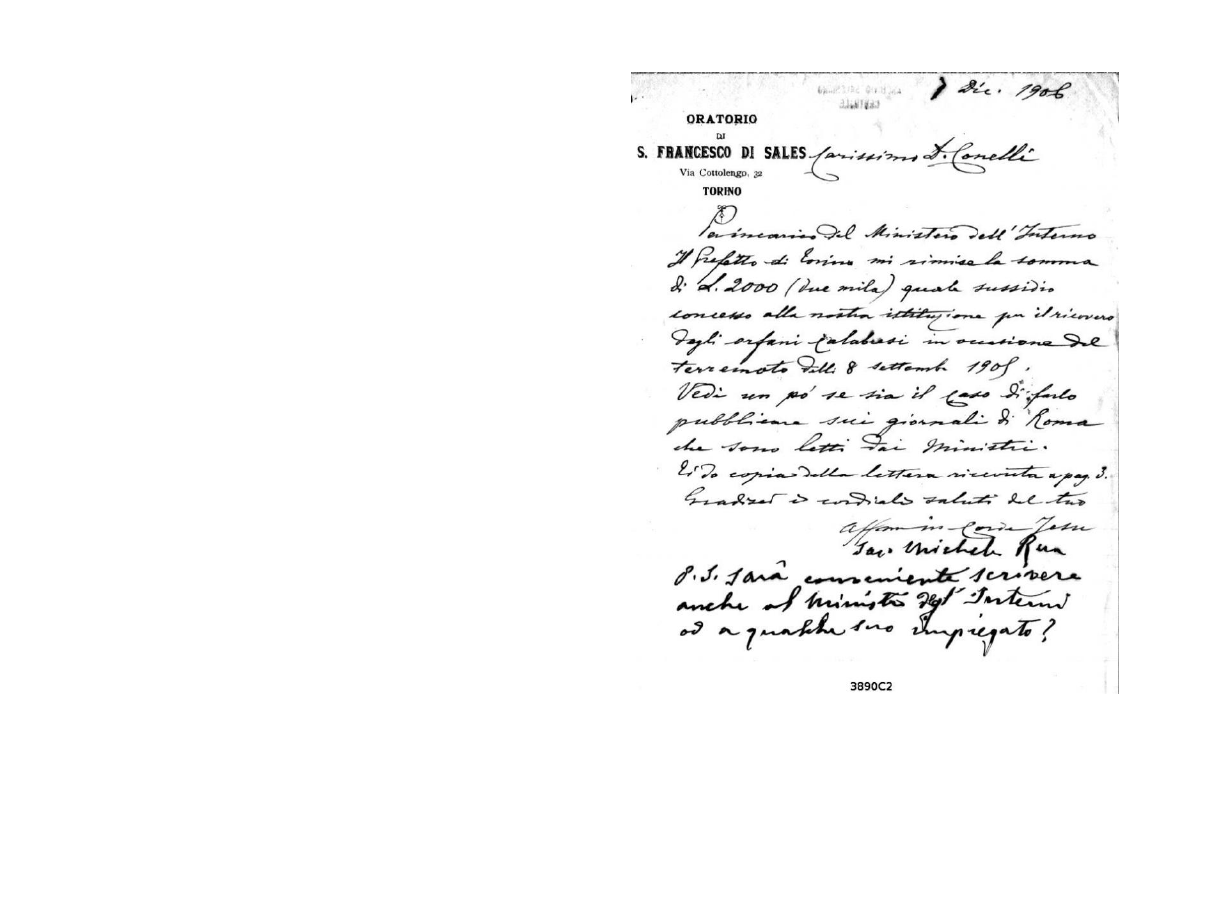 7 Dic. 1906
ORATORIO
DI
S. FRANCESCO DI SALES
Via Cottolengo, 32
TORINO
Carissimo D. Conelli
Per incarico del Ministero dell'Interno
Il Prefetto di Torino mi rimise la somma
di L. 2000 (due mila) quale sussidio
concesso alla nostra istituzione per il ricovero
degli orfani Calabresi in occasione del
terremoto delli 8 settemb 1905.
Vedi un pó se sia il caso di farlo
pubblicare sui giornali di Roma
che sono letti dai Ministri.
Ti do copia della lettera ricevuta a pag. 3.
Gradisci i cordiali saluti del tuo
Affmo in Corde Jesu
Sac. Michele Rua
P.S. Sarà conveniente scrivere
anche al Ministro degl' Interni
od a qualche suo impiegato?
3890C2